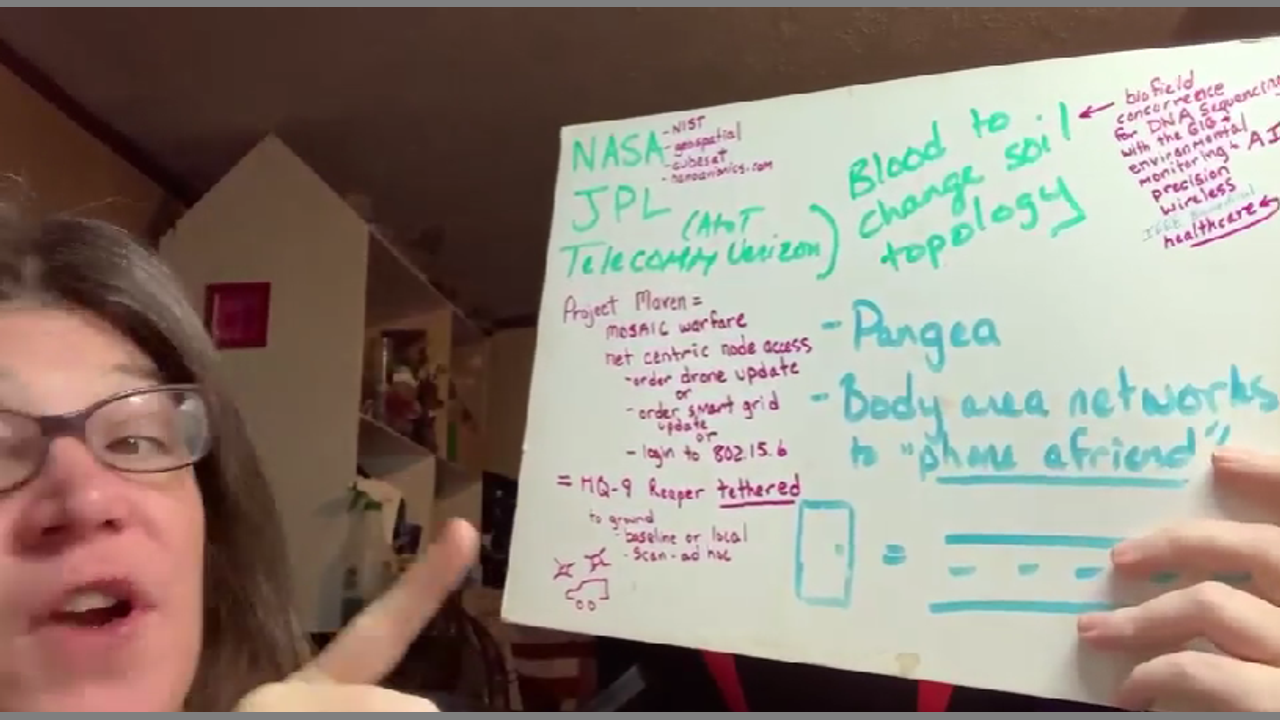 NASA
- NIST
- geospatial
- cubesat
- nanoavionics.com
JPL
(AtoT
Telecomm Verizon)
Blood to
change soil
topology
biofield
concurrence
for DNA Sequencing
with the GIG +
environmental
monitoring + AI
precision
wireless
healthcare
Project Maven =
MOSAIC warfare
net centric node access
- order drone update
or
- order smart grid
update
or
- login to 802.15.6
= MQ-9 Reaper tethered
to ground
- baseline or local
- scan - ad hoc
- Pangea
- Body area networks
to "phone a friend"
=